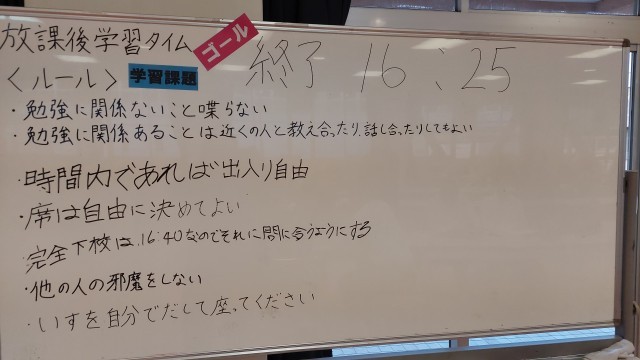 放課後学習タイム
ゴール
終了 16:25
<ルール>
学習課題
・勉強に関係ないこと喋らない
・勉強に関係あることは近くの人と教え合ったり、話し合ったりしてもよい
・時間内であれば出入り自由
・席は自由に決めてよい
・完全下校は、16:40なのでそれに間に合うようにする
・他の人の邪魔をしない
・いすを自分でだして座ってください